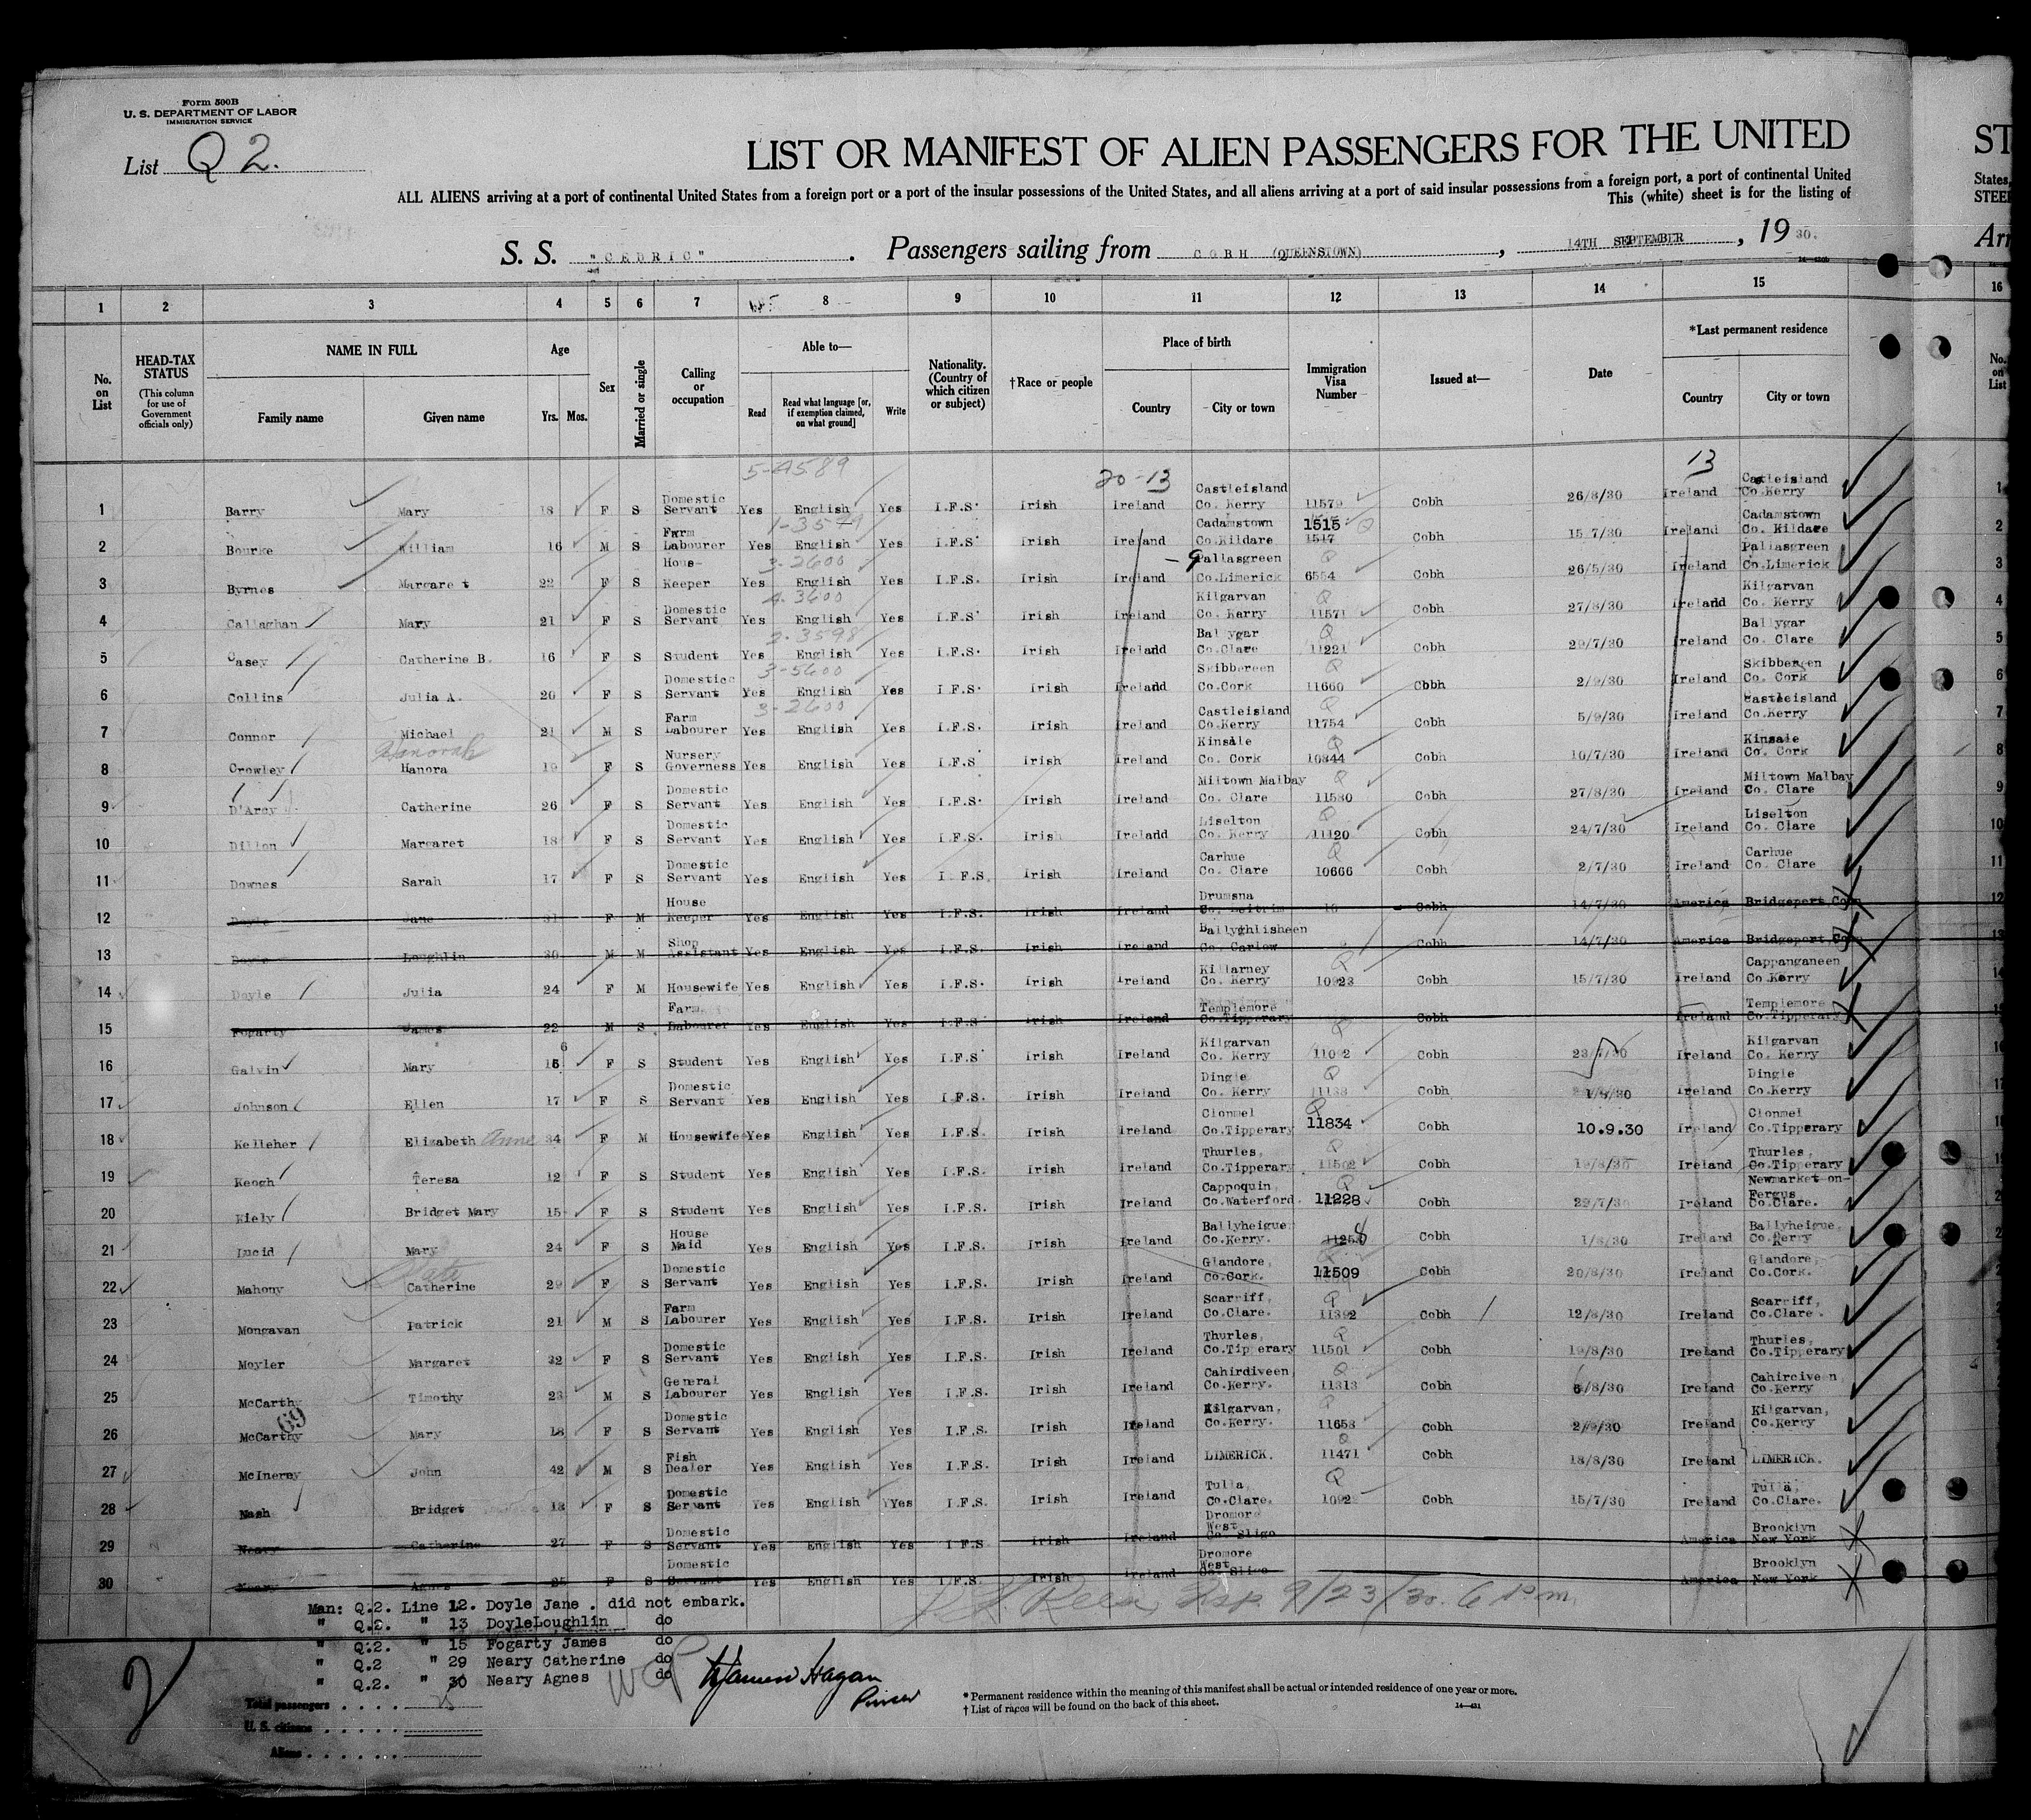 Form 500B
U. S. DEPARTMENT OF LABOR
IMMIGRATION SERVICE
List Q 2.
LIST OR MANIFEST OF ALIEN PASSENGERS FOR THE UNITED
ST
ALL ALIENS arriving at a port of continental United States from a foreign port or a port of the insular possessions of the United States, and all aliens arriving at a port of said insular possessions from a foreign port, a port of continental United
States,
This (white) sheet is for the listing of
STEE
S. S. "CEDRIC". Passengers sailing from COBH (QUEENSTOWN), 14TH SEPTEMBER, 19 30.
Arr
1 2 3 4 5 6 7 8 9 10 11 12 13 14 15 16
No. on List
HEAD-TAX STATUS
(This column for use of Government officials only)
NAME IN FULL
Family name Given name
Age
Yrs. Mos.
Sex
Married or single
Calling or occupation
Able to—
Read
Read what language [or, if exemption claimed, on what ground]
Write
Nationality. (Country of which citizen or subject)
†Race or people
Place of birth
Country City or town
Immigration Visa Number
Issued at—
Date
*Last permanent residence
Country City or town
No. on List
5-4589 20-13 13
1 Barry Mary 18 F S Domestic Servant Yes English Yes I.F.S. Irish Ireland Castleisland Co. Kerry 11579 Cobh 26/8/30 Ireland Castleisland Co.Kerry 1
2 Bourke William 16 M S Farm Labourer Yes English Yes I.F.S. Irish Ireland Cadamstown Co.Kildare 1515 1517 Cobh 15 7/30 Ireland Cadamstown Co. Kildare 2
3-2600 9
3 Byrnes Margaret 22 F S Hous- Keeper Yes English Yes I.F.S. Irish Ireland Pallasgreen Co.Limerick 6554 Cobh 26/5/30 Ireland Pallasgreen Co.Limerick 3
4-3600
4 Callaghan Mary 21 F S Domestic Servant Yes English Yes I.F.S. Irish Ireland Kilgarvan Co. Karry 11571 Cobh 27/8/30 Ireland Kilgarvan Co. Kerry 4
2-3598
5 Casey Catherine B. 16 F S Student Yes English Yes I.F.S. Irish Ireland Ballygar Co.Clare 11221 Cobh 29/7/30 Ireland Ballygar Co. Clare 5
3-5600
6 Collins Julia A. 20 F S Domestic Servant Yes English Yes I.F.S. Irish Ireland Skibbereen Co.Cork 11660 Cobh 2/9/30 Ireland Skibbereen Co. Cork 6
3-2600
7 Connor Michael 21 M S Farm Labourer Yes English Yes I.F.S. Irish Ireland Castleisland Co.Kerry 11754 Cobh 5/9/30 Ireland Castleisland Co.Kerry 7
Honorah
8 Crowley Hanora 19 F S Nursery Governess Yes English Yes I.F.S Irish Ireland Kinsale Co. Cork 10844 Cobh 10/7/30 Ireland Kinsale Co. Cork 8
9 D'Arcy Catherine 26 F S Domestic Servant Yes English Yes I.F.S. Irish Ireland Miltown Malbay Co. Clare 11580 Cobh 27/8/30 Ireland Miltown Malbay Co. Clare 9
10 Dillon Margaret 18 F S Domestic Servant Yes English Yes I.F.S. Irish Ireland Liselton Co. Kerry 11120 Cobh 24/7/30 Ireland Liselton Co. Clare 10
11 Downes Sarah 17 F S Domestic Servant Yes English Yes I.F.S. Irish Ireland Carhue Co. Clare 10666 Cobh 2/7/30 Ireland Carhue Co. Clare 11
12 Doyle Jane 31 F M House Keeper Yes English Yes I.F.S. Irish Ireland Drumsna Co. Leitrim Cobh 14/7/30 America Bridgeport Conn 12
13 Doyle Loughlin 30 M M Shop Assistant Yes English Yes I.F.S. Irish Ireland Ballyghlisheen Co. Carlow Cobh 14/7/30 America Bridgeport Conn 13
14 Doyle Julia 24 F M Housewife Yes English Yes I.F.S. Irish Ireland Killarney Co. Kerry 10923 Cobh 15/7/30 Ireland Cappanganeen Co.Kerry 14
15 Fogarty James 22 M S Farm Labourer Yes English Yes I.F.S. Irish Ireland Templemore Co.Tipperary Cobh Ireland Templemore Co.Tipperary 15
16 Galvin Mary 15 6 F S Student Yes English Yes I.F.S Irish Ireland Kilgarvan Co. Kerry Cobh 23/7/30 Ireland Kilgarvan Co. Kerry 16
17 Johnson Ellen 17 F S Domestic Servant Yes English Yes I.F.S. Irish Ireland Dingle Co. Kerry 11138 Cobh Ireland Dingle Co.Kerry 17
18 Kelleher Elizabeth Anne 34 F M Housewife Yes English Yes I.F.S. Irish Ireland Clonmel Co.Tipperary 11834 Cobh 10.9.30 Ireland Clonmel Co.Tipperary 18
19 Keogh Teresa 12 F S Student Yes English Yes I.F.S. Irish Ireland Thurles, Co.Tipperary 11502 Cobh 19/8/30 Ireland Thurles, Co.Tipperary 19
20 Kiely Bridget Mary 15 F S Student Yes English Yes I.F.S. Irish Ireland Cappoquin, Co.Waterford. 11228 Cobh 29/7/30 Ireland Newmarket-on-Fergus Co.Clare. 2
21 Lucid Mary 24 F S House Maid Yes English Yes I.F.S. Irish Ireland Ballyheigue Co.Kerry. Cobh 1/8/30 Ireland Ballyheigue, Co.Kerry 2
22 Mahony Catherine 29 F S Domestic Servant Yes English Yes I.F.S. Irish Ireland Glandore, Co.Cork. 11509 Cobh 20/8/30 Ireland Glandore, Co.Cork.
23 Mongavan Patrick 21 M S Farm Labourer Yes English Yes I.F.S. Irish Ireland Scarriff, Co.Clare. 11392 Cobh 12/8/30 Ireland Scarriff, Co.Clare.
24 Moyler Margaret 32 F S Domestic Servant Yes English Yes I.F.S. Irish Ireland Thurles, Co.Tipperary 11501 Cobh 19/8/30 Ireland Thurles, Co.Tipperary
25 McCarthy Timothy 23 M S General Labourer Yes English Yes I.F.S. Irish Ireland Cahirdiveen, Co.Kerry. 11313 Cobh 6/8/30 Ireland Cahirciveen, Co.Kerry
69
26 McCarthy Mary 18 F S Domestic Servant Yes English Yes I.F.S. Irish Ireland Kilgarvan, Co.Kerry. 11658 Cobh 2/9/30 Ireland Kilgarvan, Co.Kerry
27 McInerey John 42 M S Fish Dealer Yes English Yes I.F.S. Irish Ireland LIMERICK. 11471 Cobh 18/8/30 Ireland LIMERICK.
28 Nash Bridget 18 F S Domestic Servant Yes English YYes I.F.S. Irish Ireland Tulla, Co.Clare. 1092 Cobh 15/7/30 Ireland Tulla, Co.Clare.
29 Neary Catherine 27 F S Domestic Servant Yes English Yes I.F.S Irish Ireland Dromore West Co. Sligo America Brooklyn New York
30 Neary Agnes 25 F S Domestic Servant Yes English Yes I.F.S. Irish Ireland Dromore West Co. Sligo America Brooklyn New York
Insp. 9/23/30. 6 P.m.
Man: Q.2. Line 12. Doyle Jane . did not embark.
" Q.2. " 13 DoyleLoughlin do
" Q.2. " 15 Fogarty James do
" Q.2 " 29 Neary Catherine do
" Q.2. " 30 Neary Agnes do
Hagan
Purser
2
Total passengers
U. S. citizens
Aliens
* Permanent residence within the meaning of this manifest shall be actual or intended residence of one year or more.
† List of races will be found on the back of this sheet.